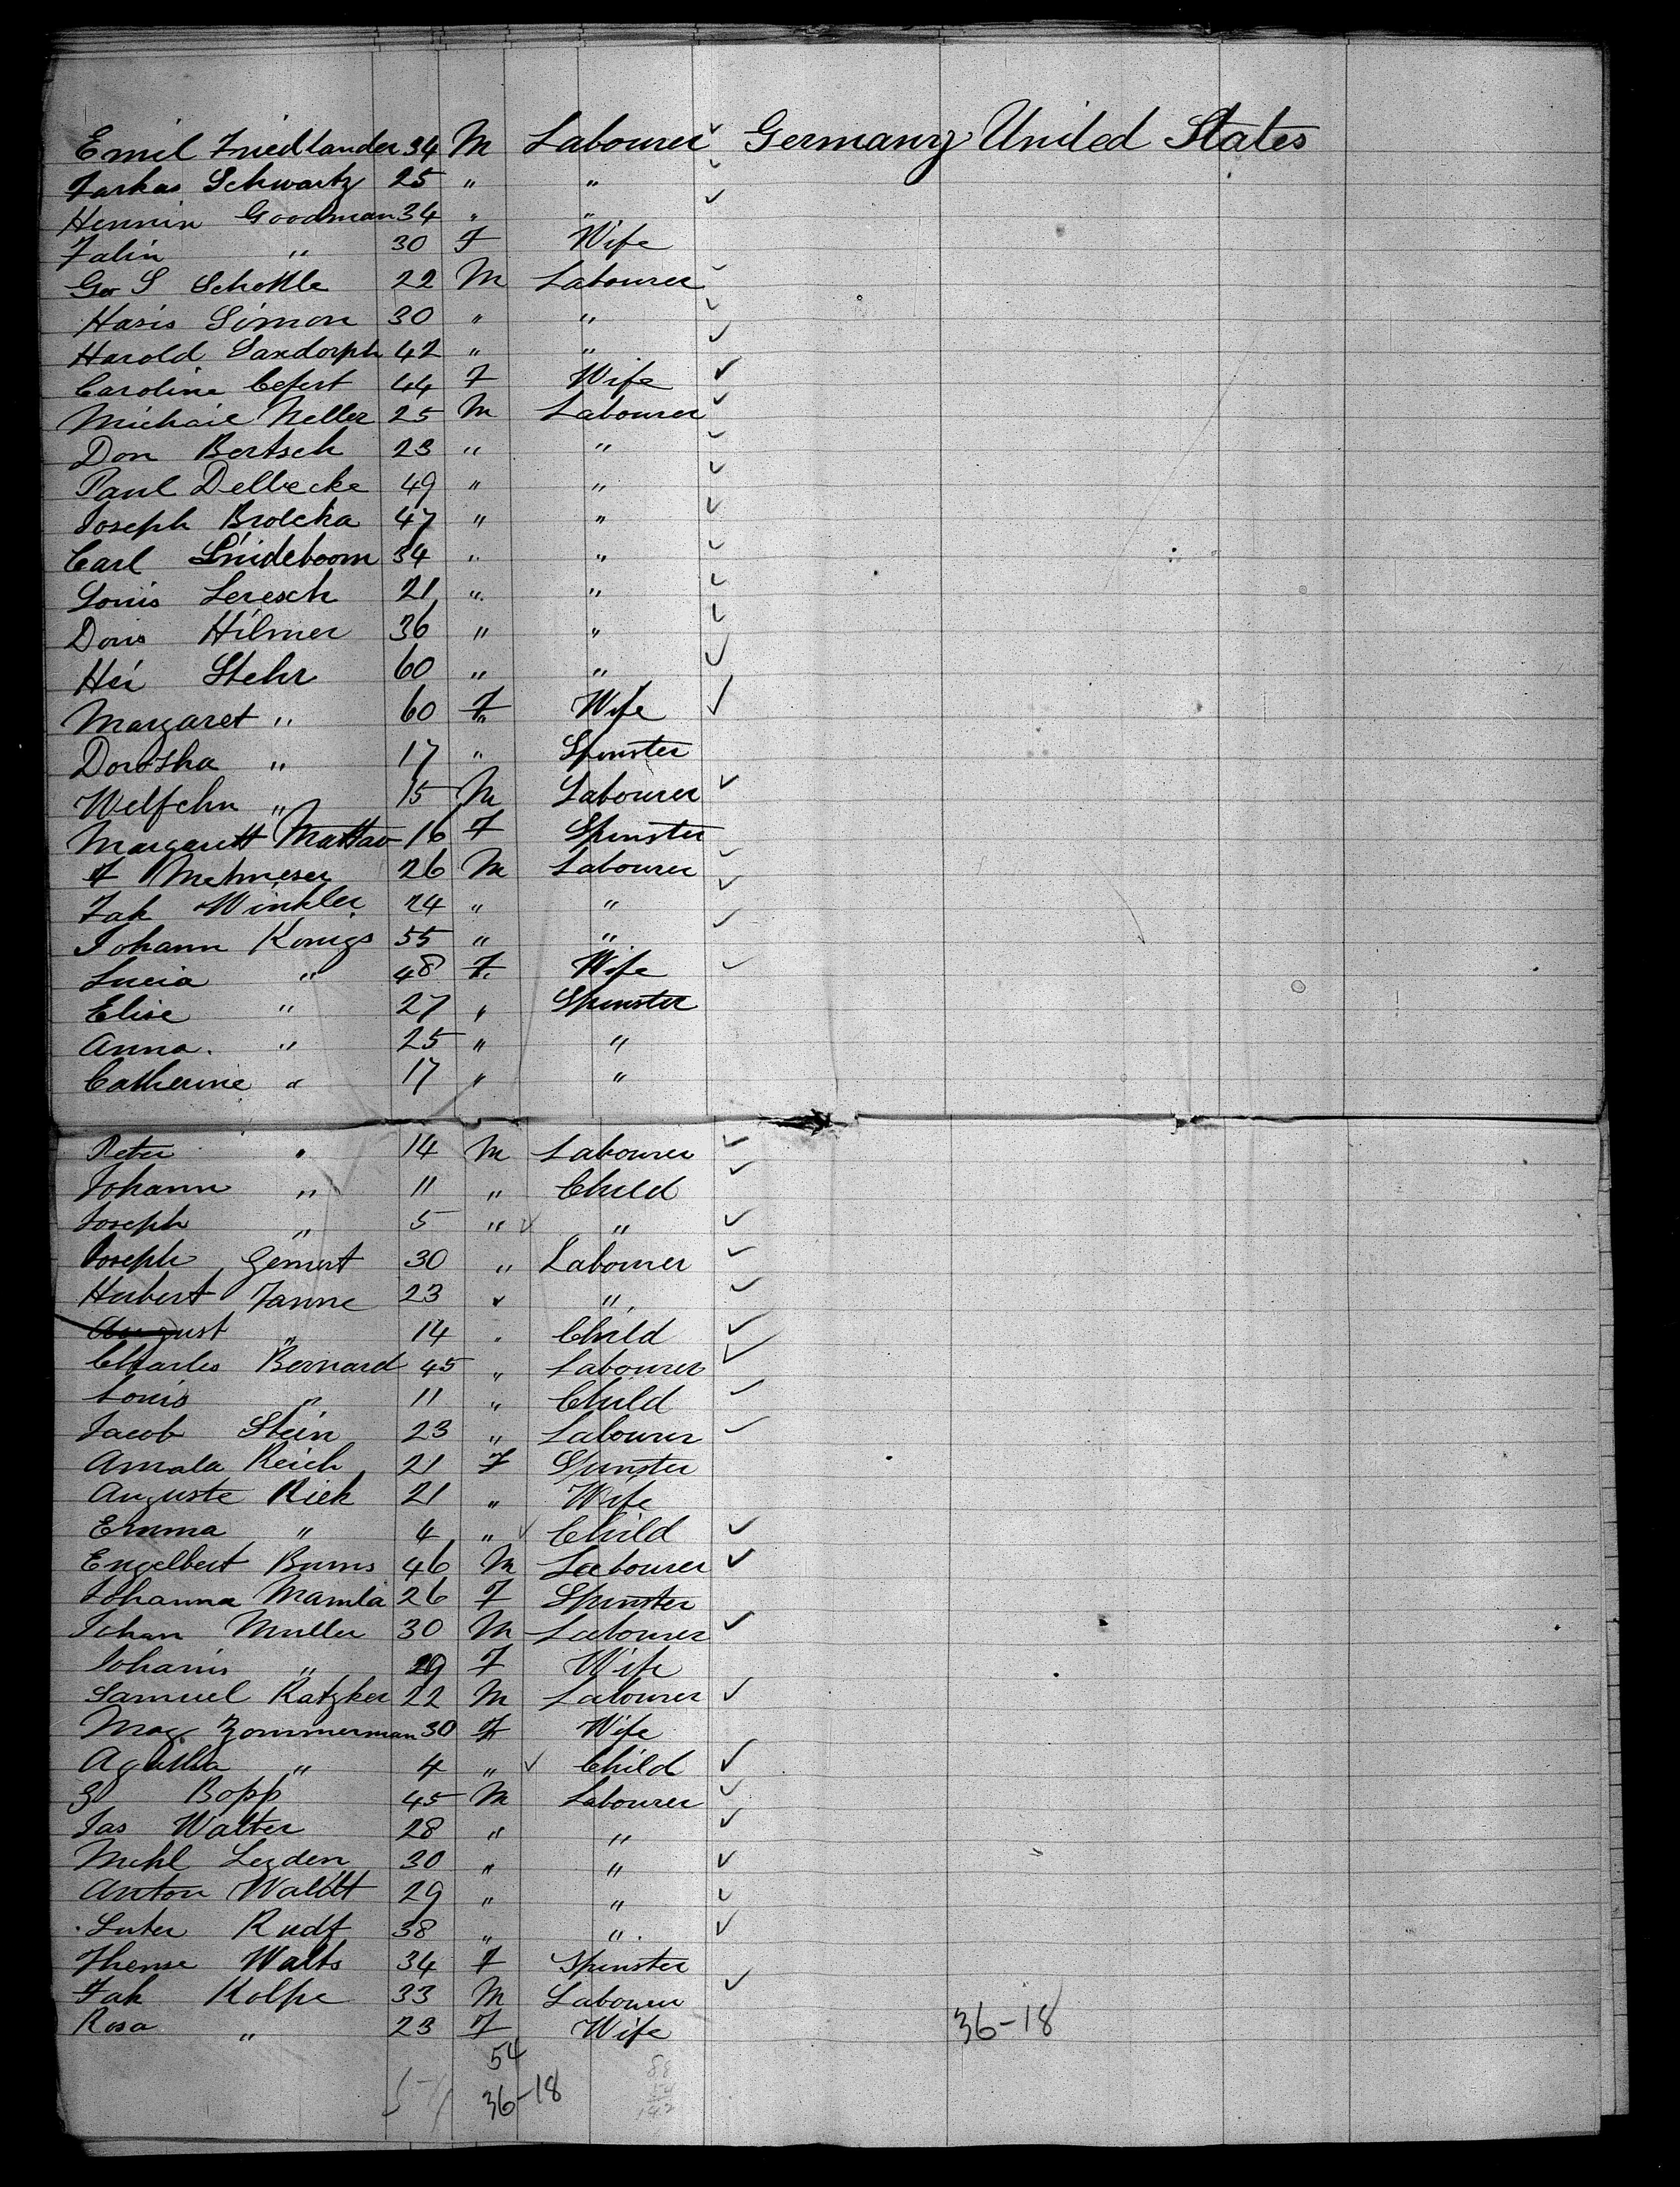 Emil Friedlander 34 M Labourer Germany United States
Farkas Schwartz 25 " "
Hennin Goodman 34 " "
Falin " 30 F Wife
Geo S Schottle 22 M Labourer
Hasis Simon 30 " "
Harold Saxdorph 42 " "
Caroline Cefert 44 F Wife
Michail Neller 25 M Labourer
Don Bertsch 23 " "
Paul Delbecke 49 " "
Joseph Brolcha 47 " "
Carl Lindeboom 34 " "
Louis Leresch 21 " "
Doris Hilmer 36 " "
Hei Stehr 60 " "
Margaret " 60 F Wife
Dorotha " 17 " Spinster
Welfehn " 15 M Labourer
Margarett Mattao 16 F Spinster
F 26 M Labourer
Jak Winkler 24 " "
Johann Konigs 55 " "
Lucia " 48 F. Wife
Elise " 27 " Spinster
Anna. " 25 " "
Catherine " 17 " "
Peter " 14 M Labourer
Johann " 11 " Child
Joseph " 5 " "
Joseph Gemert 30 " Labourer
Herbert Janne 23 " "
August " 14 " Child
Charles Bernard 45 " Labourer
Louis " 11 " Child
Jacob Stein 23 " Labourer
Amala Reich 21 F Spinster
Auguste Rick 21 " Wife
Emma " 4 " Child
Engelbert Bums 46 M Labourer
Johanna Mamla 26 F Spinster
Johan Muller 30 M Labourer
Johanis " 29 F Wife
Samuel Katzker 22 M Labourer
Mag Zommerman 30 F Wife
" 4 " Child
Bopp 45 M Labourer
Jas Walter 28 " "
Mchl Legden 30 " "
Anton Waldt 29 " "
Luter Rudf 38 " "
Thense Walts 34 F Spinster
Jak Kolpe 33 M Labourer
Rosa " 23 F Wife 36-18
54
54 36-18
88
54
142